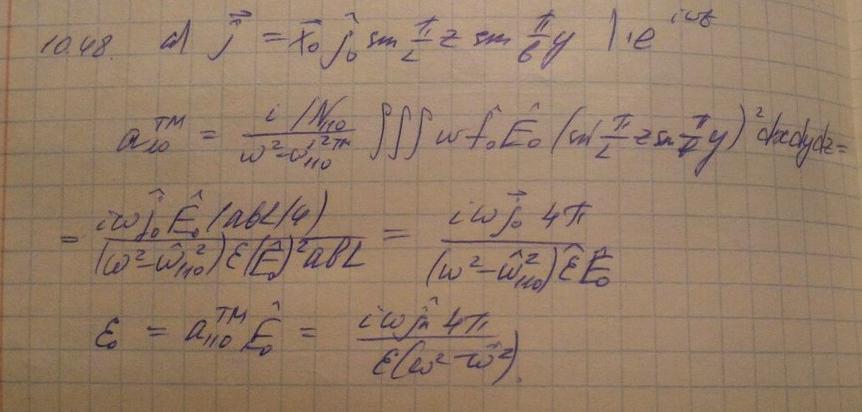 10.48. a) j⃗ = x⃗₀ ĵ₀ sin π/L z sin π/b y | · e^{iωt}
a₁₁₀^{TM} = (i / N₁₁₀)/(ω² - ω₁₁₀^{2TM}) ∫∫∫ ω ĵ₀ Ê₀ (sin π/L z sin π/b y)² dx dy dz =
= (iω ĵ₀ Ê₀ (abL/4))/((ω² - ω̂₁₁₀²) ε (Ê₀)² abL) = (iω j⃗₀ 4π)/((ω² - ω̂₁₁₀²) ε̂ Ê₀)
ε₀ = a₁₁₀^{TM} Ê₀ = (iω ĵ₀ 4π)/(ε(ω² - ω̂²)).